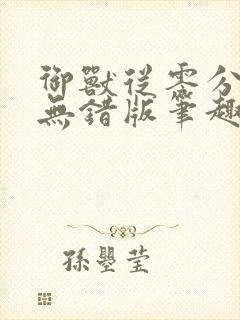 御獸從零分
無錯版筆趣
孫壁瑩